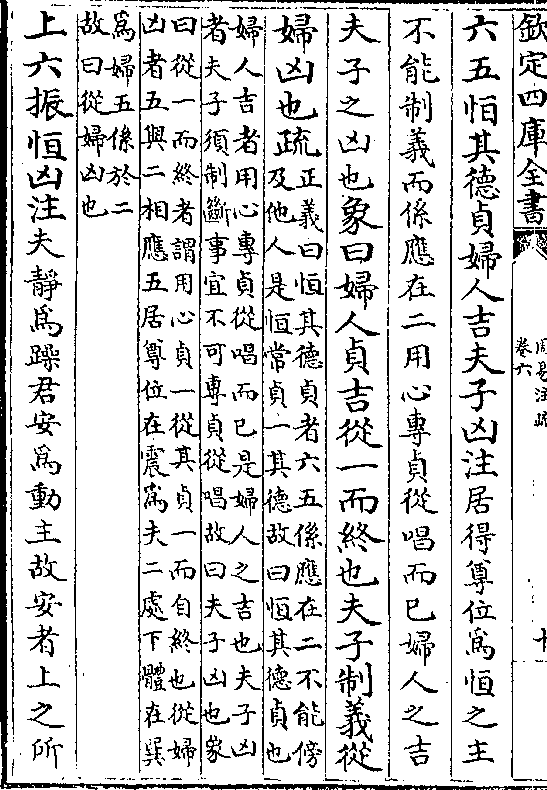 欽定四庫全書
周易注疏
卷六
十
六五恒其德貞婦人吉夫子凶注居得尊位為恒之主
不能制義而係應在二用心專貞從唱而已婦人之吉
夫子之凶也象曰婦人貞吉從一而終也夫子制義從
婦凶也疏正義曰恒其德貞者六五係應在二不能傍
及他人是恒常貞一其德故曰恒其德貞也
婦人吉者用心專貞從唱而已是婦人之吉也夫子凶
者夫子須制斷事宜不可專貞從唱故曰夫子凶也象
曰從一而終者謂用心貞一從其貞一而自終也從婦
凶者五與二相應五居尊位在震為夫二處下體在巽
為婦五係於二
故曰從婦凶也
上六振恒凶注夫靜為躁君安為動主故安者上之所